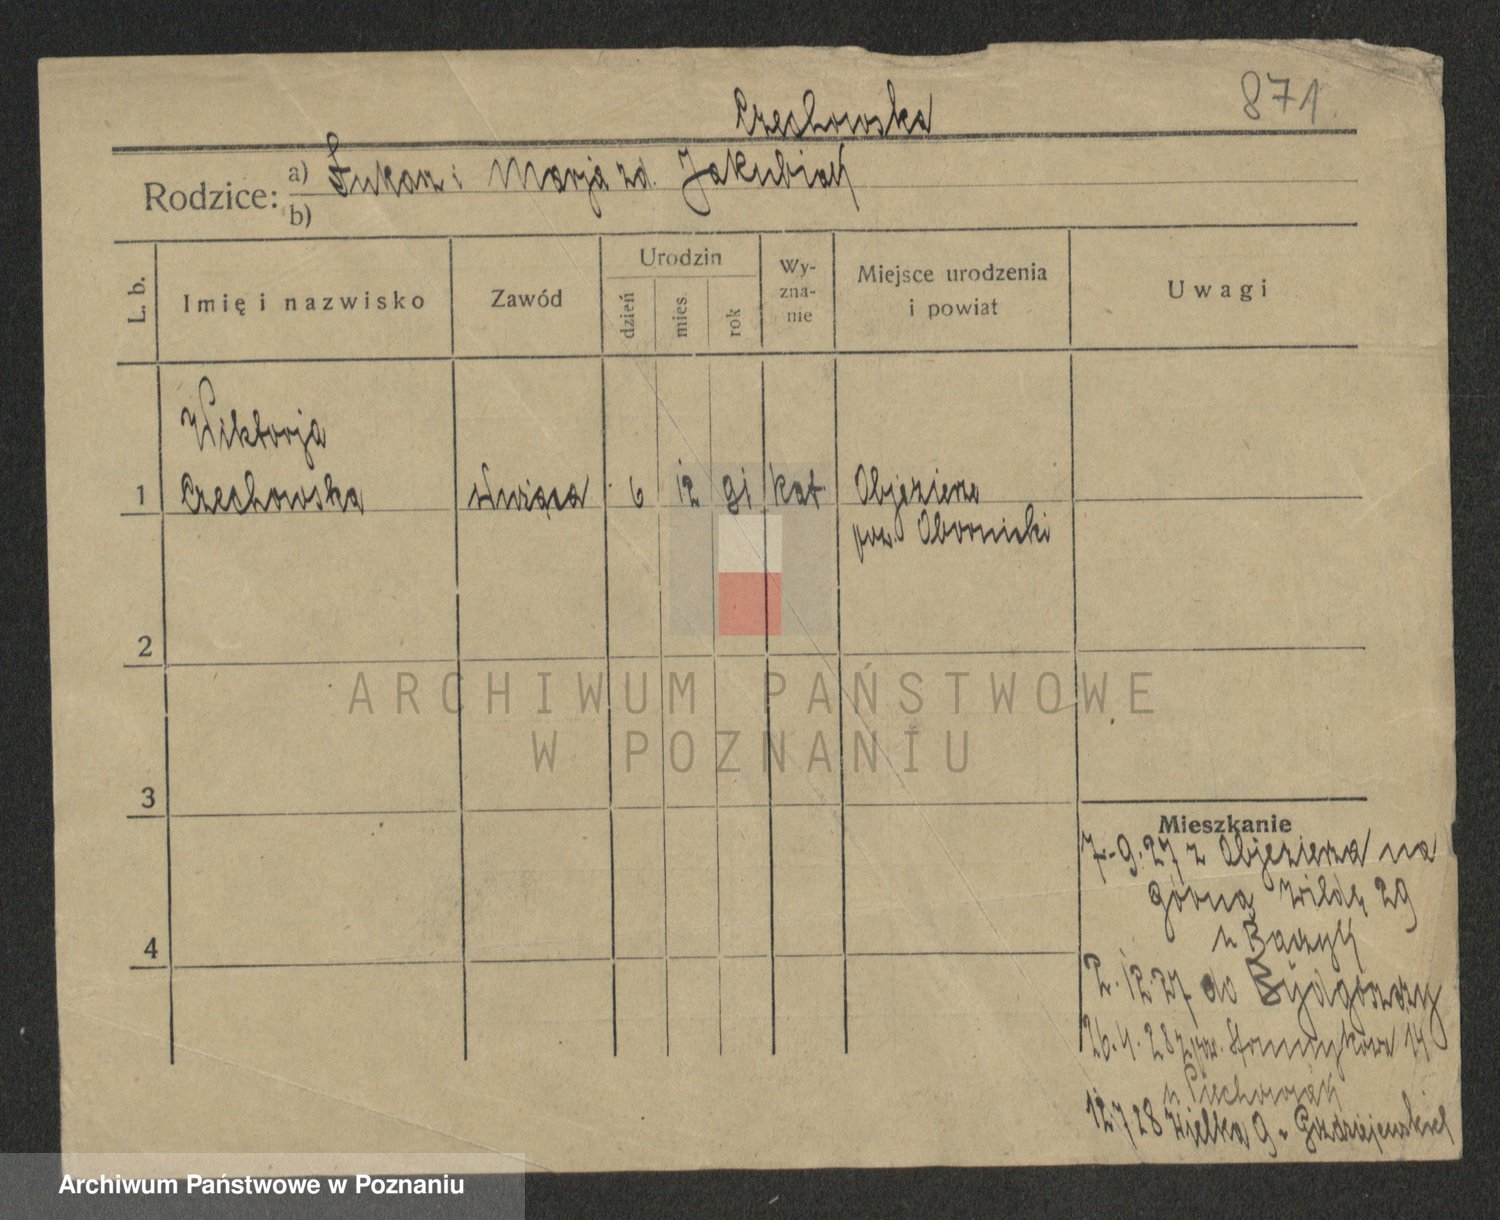 871.
Czechowska
Rodzice: a) Łukasz i Marja zd. Jakubiak
b)
L. b.
Imię i nazwisko
Zawód
Urodzin
dzień
mies.
rok
Wy-
zna-
nie
Miejsce urodzenia
i powiat
Uwagi
Wiktorja
1 Czechowska służąca 6 12 91 kat. Objezierze
pow. Obornicki
2
ARCHIWUM PAŃSTWOWE
W POZNANIU
3
Mieszkanie
7.9.27 z Objezierza na
Górną Wildę 29
u Bączyk
2.12.27 do Bydgoszczy
26.4.28 z 14
u
12.7.28 Wielka 9 u Goździejewskich
4
Archiwum Państwowe w Poznaniu